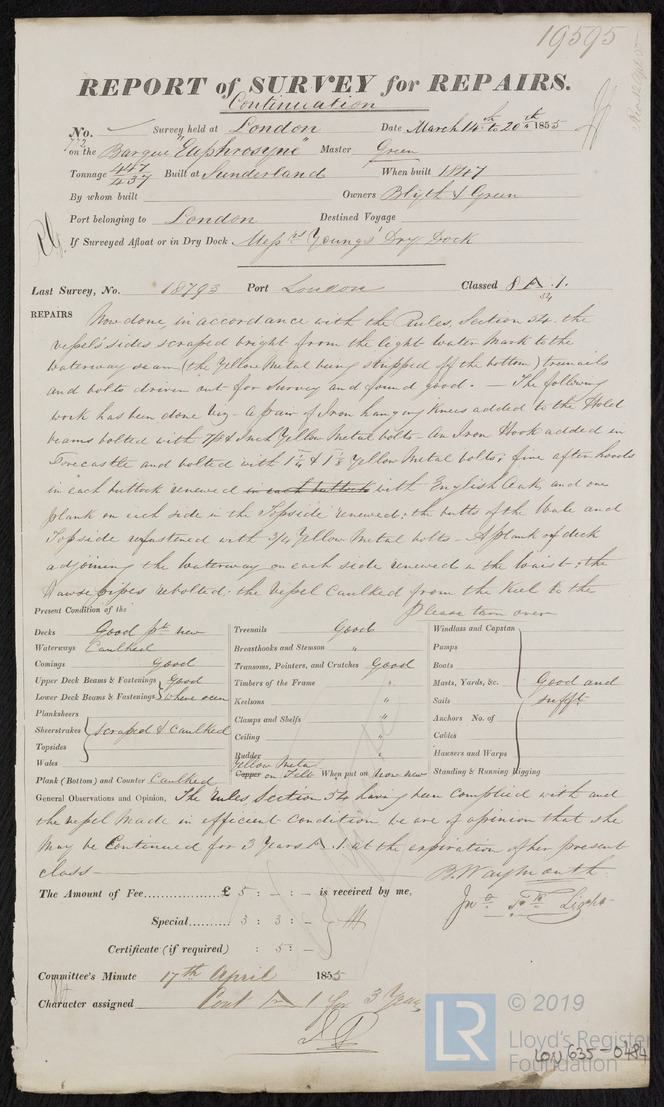 19595
REPORT of SURVEY for REPAIRS.
Continuation
No. Survey held at London Date March 14th to 20th 1855
on the Barque "Euphrosyne" Master Green
Tonnage 447 437 Built at Sunderland When built 1847
By whom built Owners Blyth & Green
Port belonging to London Destined Voyage
If Surveyed Afloat or in Dry Dock Messrs Youngs' Dry Dock
Last Survey, No. 18793 Port London Classed 8 A .1.
34
REPAIRS Now done, in accordance with the Rules, Section 54. the
vessel's sides scraped bright from the light water mark to the
waterway seam (the Yellow Metal being stripped off the bottom) treenails
and bolts driven out for survey and found good. — The following
work has been done viz - A pair of Iron hanging Knees added to the Hold
beams bolted with 7/8 & Inch Yellow Metal bolts - An Iron Hook added in
Forecastle and bolted with 1 1/4 & 1 1/8 Yellow Metal bolts, five after hoods
in each buttock renewed in each buttock with English Oak, and one
plank on each side in the Topside renewed; the butts of the Wale and
Topside refastened with 3/4 Yellow Metal bolts - A plank of deck
adjoining the waterway on each side renewed in the waist; the
Hawse pipes rebolted. the vessel Caulked from the Keel to the
Please turn over
Present Condition of the
Decks Good pt new
Waterways Caulked
Comings good
Upper Deck Beams & Fastenings good
Lower Deck Beams & Fastenings where seen
Planksheers
Sheerstrakes scraped & Caulked
Topsides
Wales
Plank (Bottom) and Counter Caulked
Treenails Good
Breasthooks and Stemson "
Transoms, Pointers, and Crutches Good
Timbers of the Frame "
Keelsons "
Clamps and Shelfs "
Ceiling "
Rudder "
Yellow Metal
Copper on Felt When put on now new
Windlass and Capstan
Pumps
Boats
Masts, Yards, &c. Good and
Sails sufft
Anchors No. of
Cables
Hawsers and Warps
Standing & Running Rigging
General Observations and Opinion, The Rules, Section 54 having been complied with and
the vessel made in efficient Condition we are of opinion that she
may be Continued for 3 Years A .1. at the expiration of her present
class —
B. Waymouth
The Amount of Fee £ 5 : - : - is received by me,
Special 3 : 3 : -
Certificate (if required) : 5 : -
Committee's Minute 17th April 1855
Character assigned Cont A 1 for 3 Years
LR © 2019
Lloyd's Register
Foundation
LON 635-0484